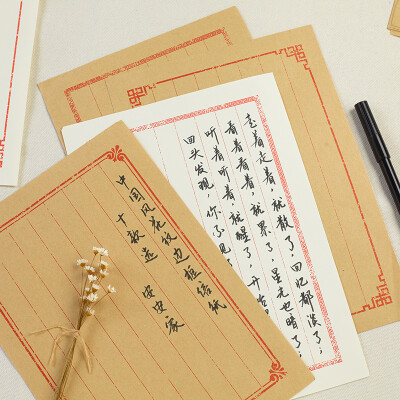 走着走着，就散了，回忆都淡了；
看着看着，就累了，星光也暗了；
听着听着，就醒了，开
回头发现，你不见
中国风花纹边框信纸
十款选 安安家